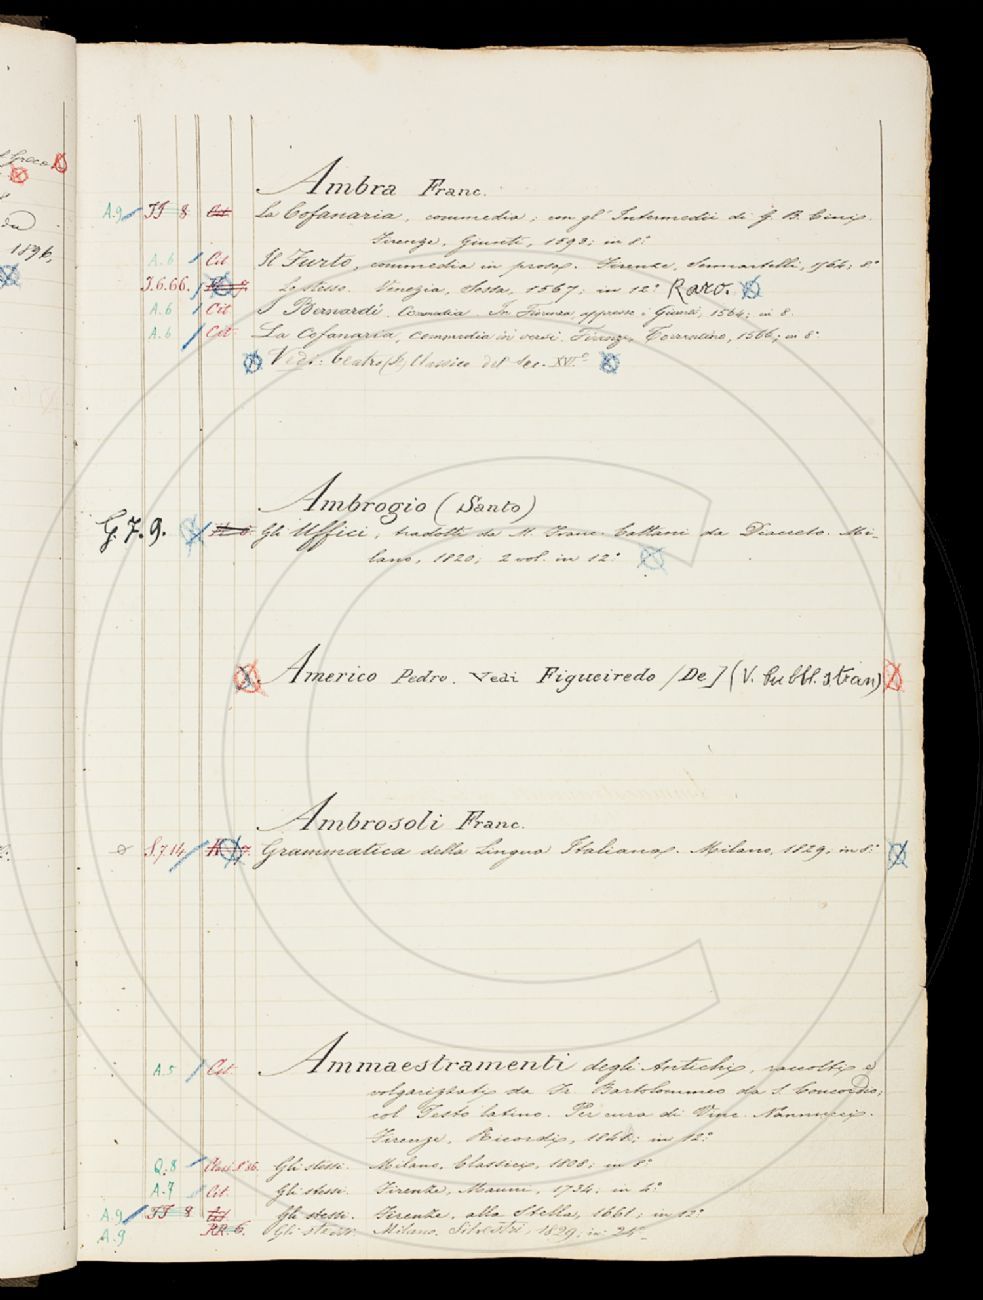 Ambra Franc.
A.9 FF 8 Cit La Cofanaria, commedia; con gl' Intermedii di G. B. Cini.
Firenze, Giunti, 1593; in 8.°
A.6 Cit Il Furto, commedia in prosa. Firenze, Sermartelli, 1564; 8.°
J.6.66. Lo stesso. Venezia, Sesta, 1567; in 12.° Raro.
A.6 Cit I Bernardi. Commedia. In Fiorenza appresso i Giunti, 1564; in 8.
A.6 Cit La Cofanaria, commedia in versi. Firenze, Torrentino, 1566; in 8.°
Vedi: Teatro Classico del Sec. XVI.°
Ambrogio (Santo)
G.7.9. Gli Uffici; tradotti da M. Franc. Cattani da Diacceto. Mi-
lano, 1820; 2 vol. in 12.°
Americo Pedro. Vedi Figueiredo (De) (V. bubbl. stran)
Ambrosoli Franc.
S.7.14 Grammatica della Lingua Italiana. Milano, 1829; in 8.°
A.5 Cit Ammaestramenti degli Antichi, raccolti e
volgarizzati da Fr. Bartolommeo da S. Concordio;
col Testo latino. Per cura di Vinc. Nannucci.
Firenze, Ricordi, in 12.°
Q.8 Class. Gli stessi. Milano, Classici, 1808; in 8.°
A.7 Cit. Gli stessi. Firenze, Manni, 1734; in 4.°
A.9 FF 8 Gli stessi. Firenze, alla Stella, 1661; in 12.°
A.9 RR. 6. Gli stessi. Milano, Silvestri, 1829; in 24.°